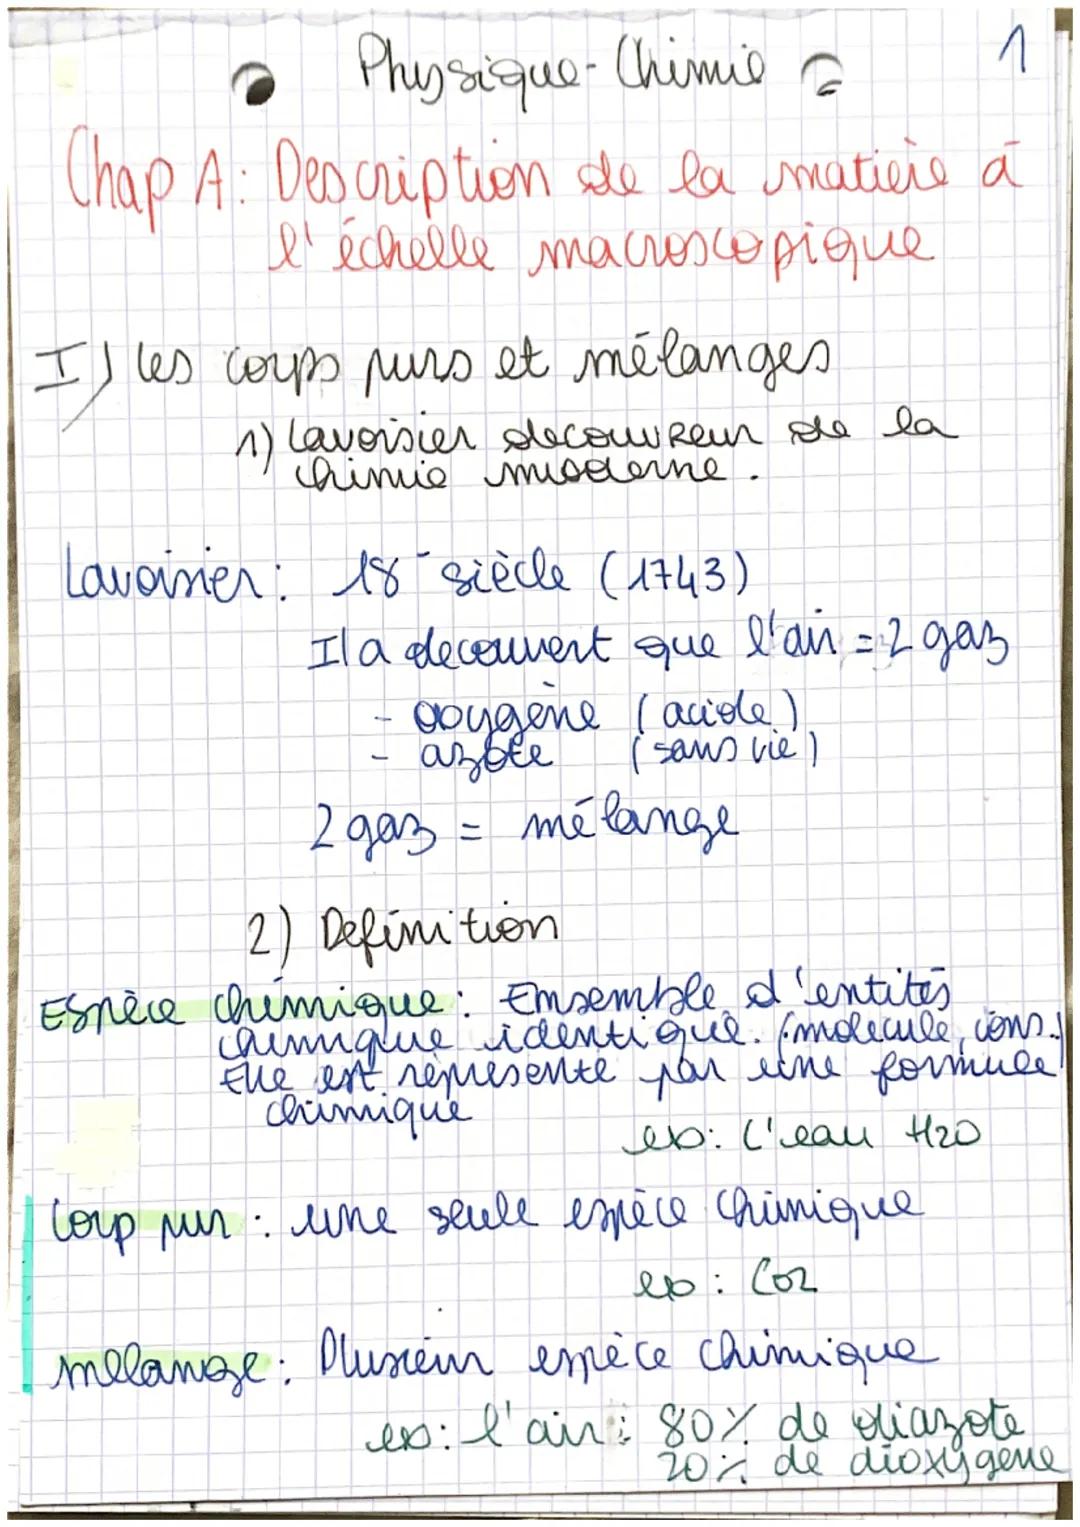 Physique-Chimie
1
Chap A: Description de la matière à
l'échelle macroscopique
I) les corps purs et mélanges
1) Lavoisier decouvreur de la
chimie moderne.
Lavoisier: 18e siècle (1743)
Il a decouvert que l'air = 2 gaz
- oxygène (acide)
- azote (sans vie)
2 gaz = mélange
2) Definition
Espèce chimique: Ensemble d'entités
chimique identique. (molécule, ions..)
Elle est représenté par une formule
chimique
ex: L'eau H2O
Corp pur: une seule espèce chimique
ex: CO2
mélange: Plusieur espèce chimique
ex: l'air: 80% de diazote
20% de dioxygene